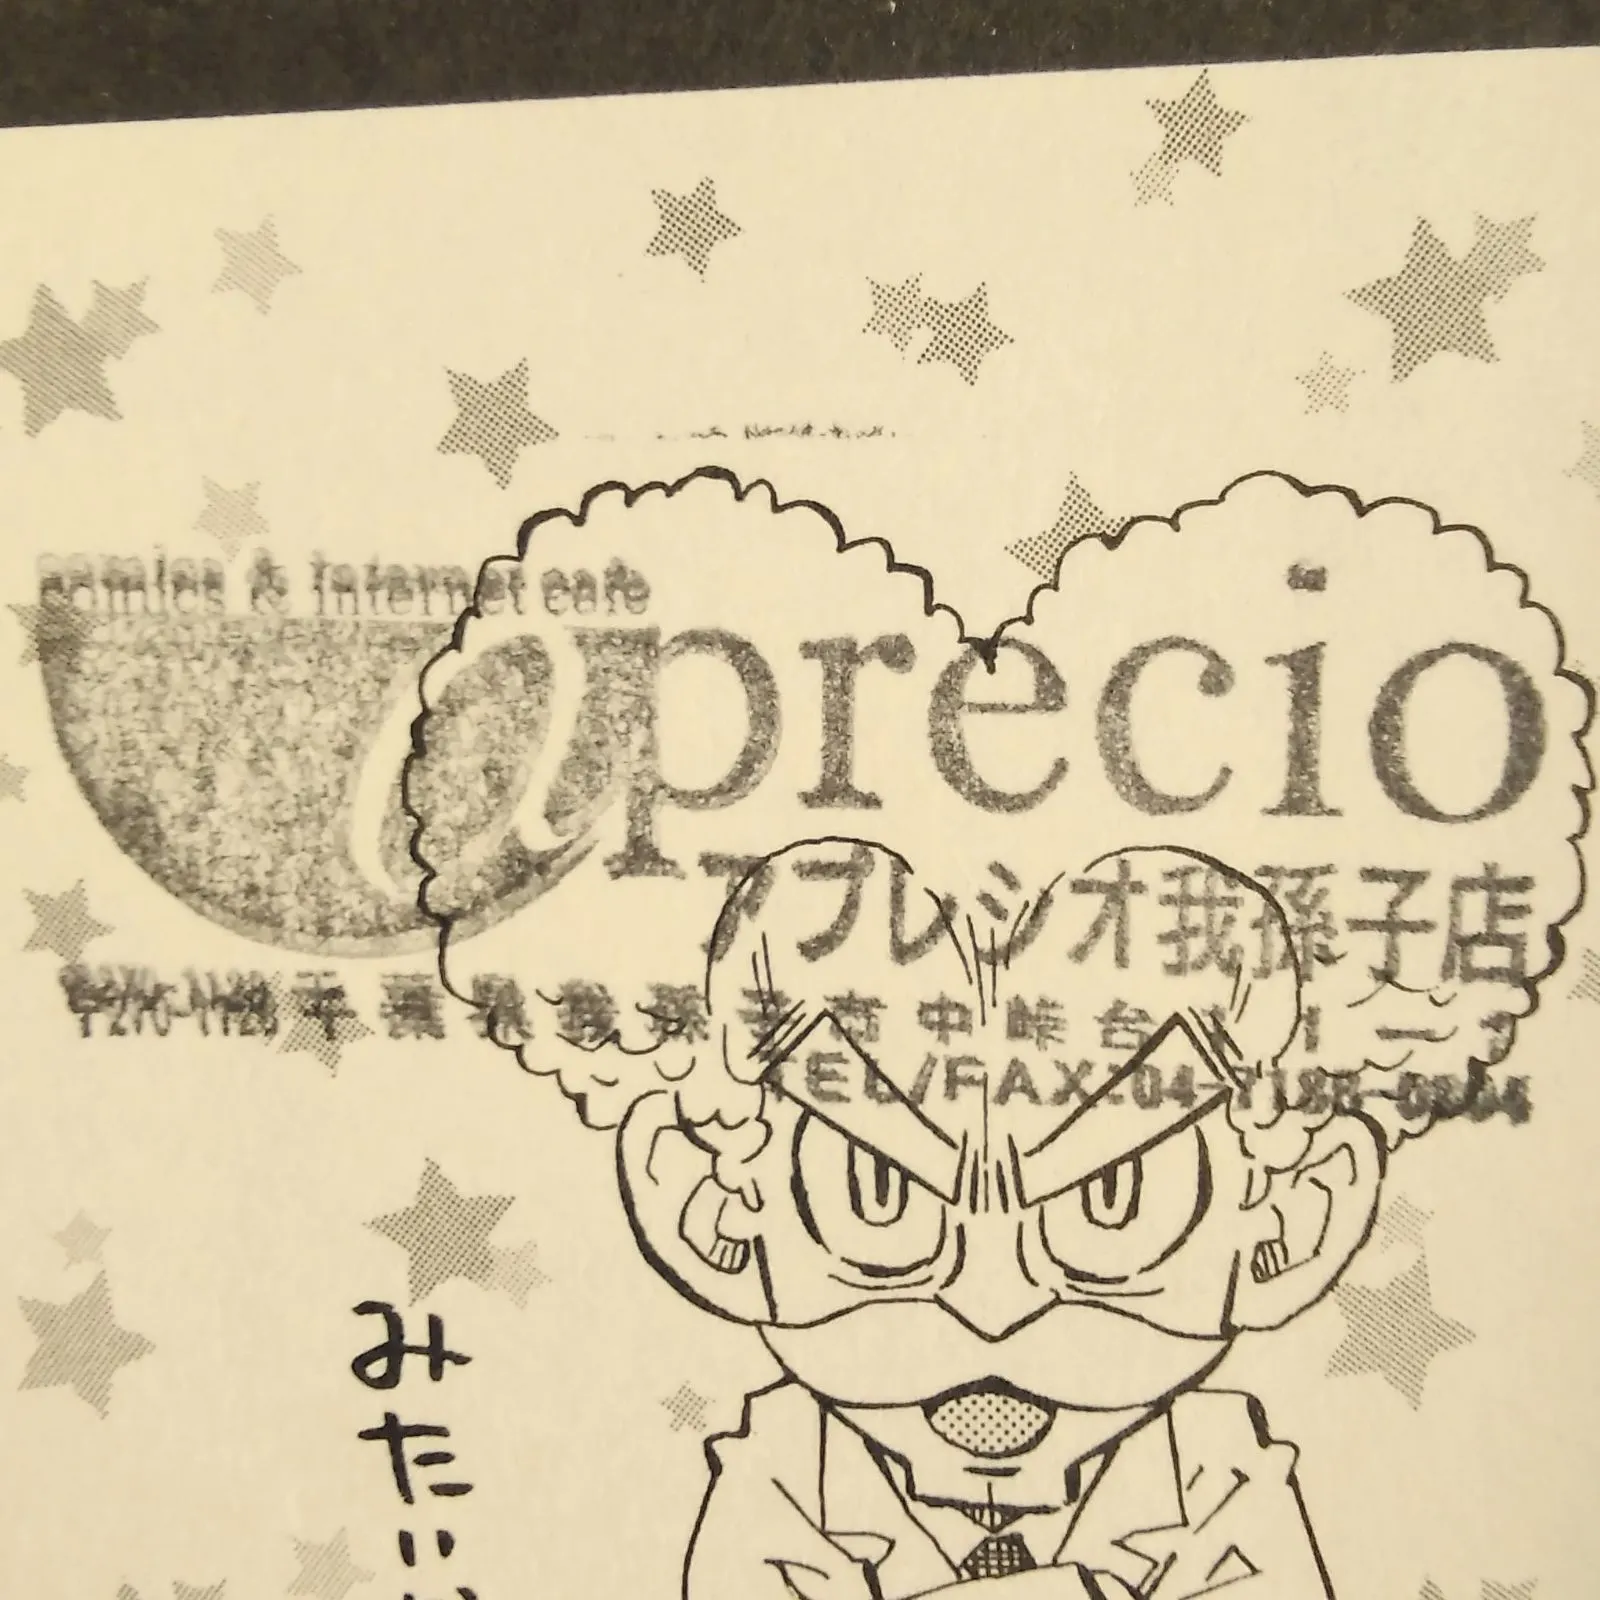 comics & internet cafe
aprecio
アプレシオ我孫子店
〒270-1120 千葉県我孫子市中峠台
TEL/FAX:04-7188-
みたい